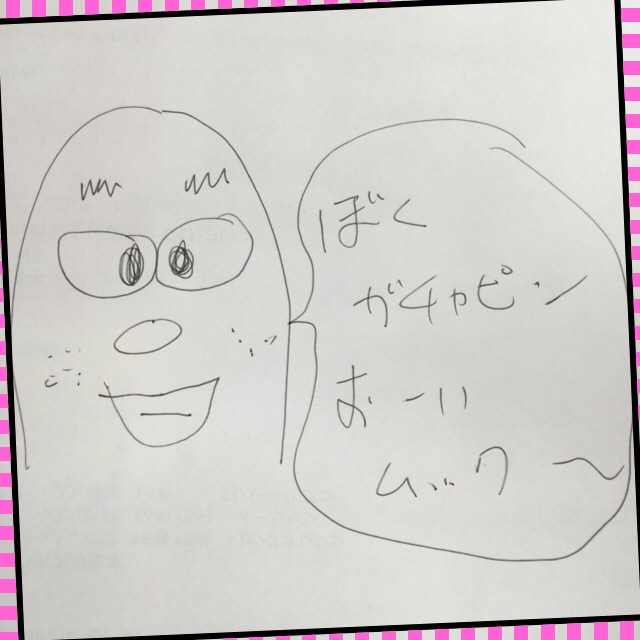 ぼく
ガチャピン
おーい
ムック〜